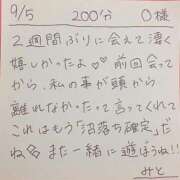 9/5 200分 O様
2週間ぶりに会えて凄く
嬉しかったよ♡♡ 前回会って
から、私の事が頭から
離れなかったって言ってくれて
これはもう「沼落ち確定」だ
ね また一緒に遊ぼうね!!
みと